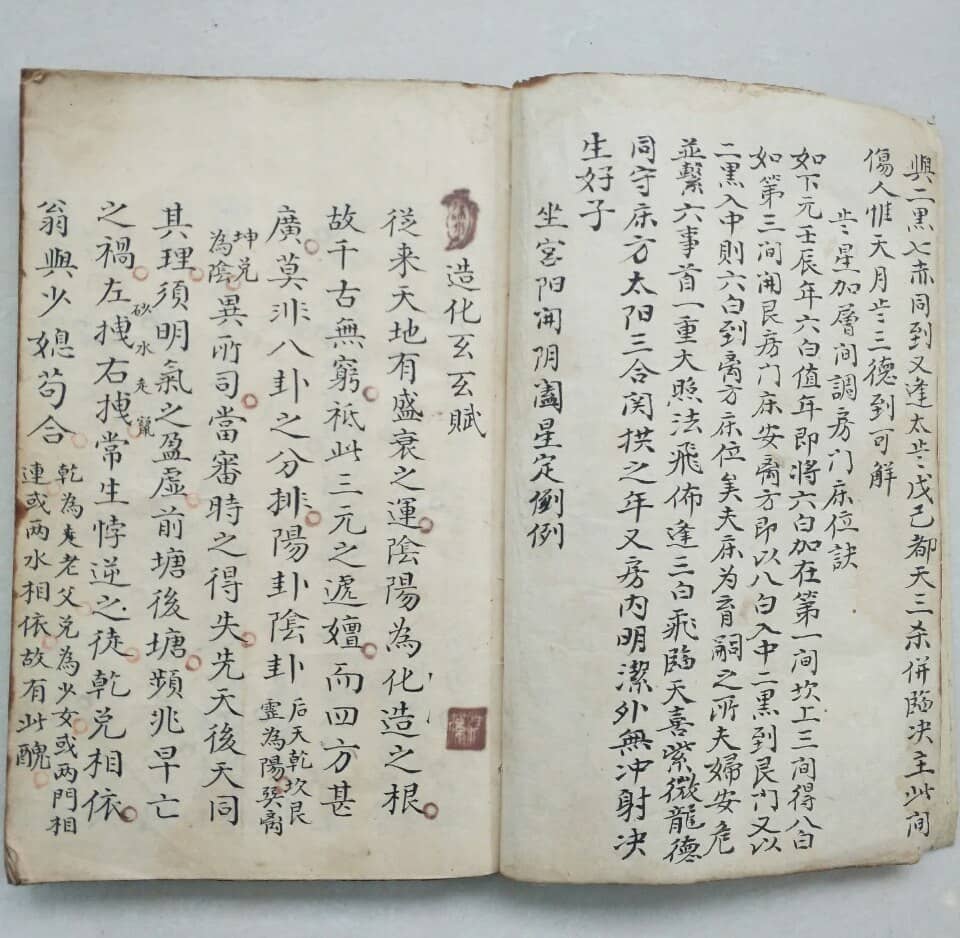 與二黑七赤同到又逢太岁戊己都天三杀併臨决主此间
傷人惟天月岁三德到可解
岁星加層间調房门床位訣
如下元壬辰年六白值年即將六白加在第一间坎上三间得八白
如第三间开艮房门床安离方即以八白入中二黑到艮门又以
二黑入中則六白到离方床位矣夫床为育嗣之所夫婦安危
並繫六事首一重大照法飛佈逢三白飛臨天喜紫微龍德
同守床方太阳三合関拱之年又房内明潔外無冲射决
生好子
坐宮阳开阴阖星定例
造化玄玄賦
従来天地有盛衰之運陰陽為化造之根
故千古無窮祗此三元之遞嬗而四方甚
廣莫非八卦之分排陽卦陰卦
后天乾坎艮
震為陽巽离
坤兑
為陰
異所司當審時之得失先天後天同
其理須明氣之盈虚前塘後塘頻兆早亡
之禍左拽右拽常生悖逆之徒乾兑相依
砂水走竄
翁與少媳苟合
乾為老父兑為少女或两門相
連或两水相依故有此醜